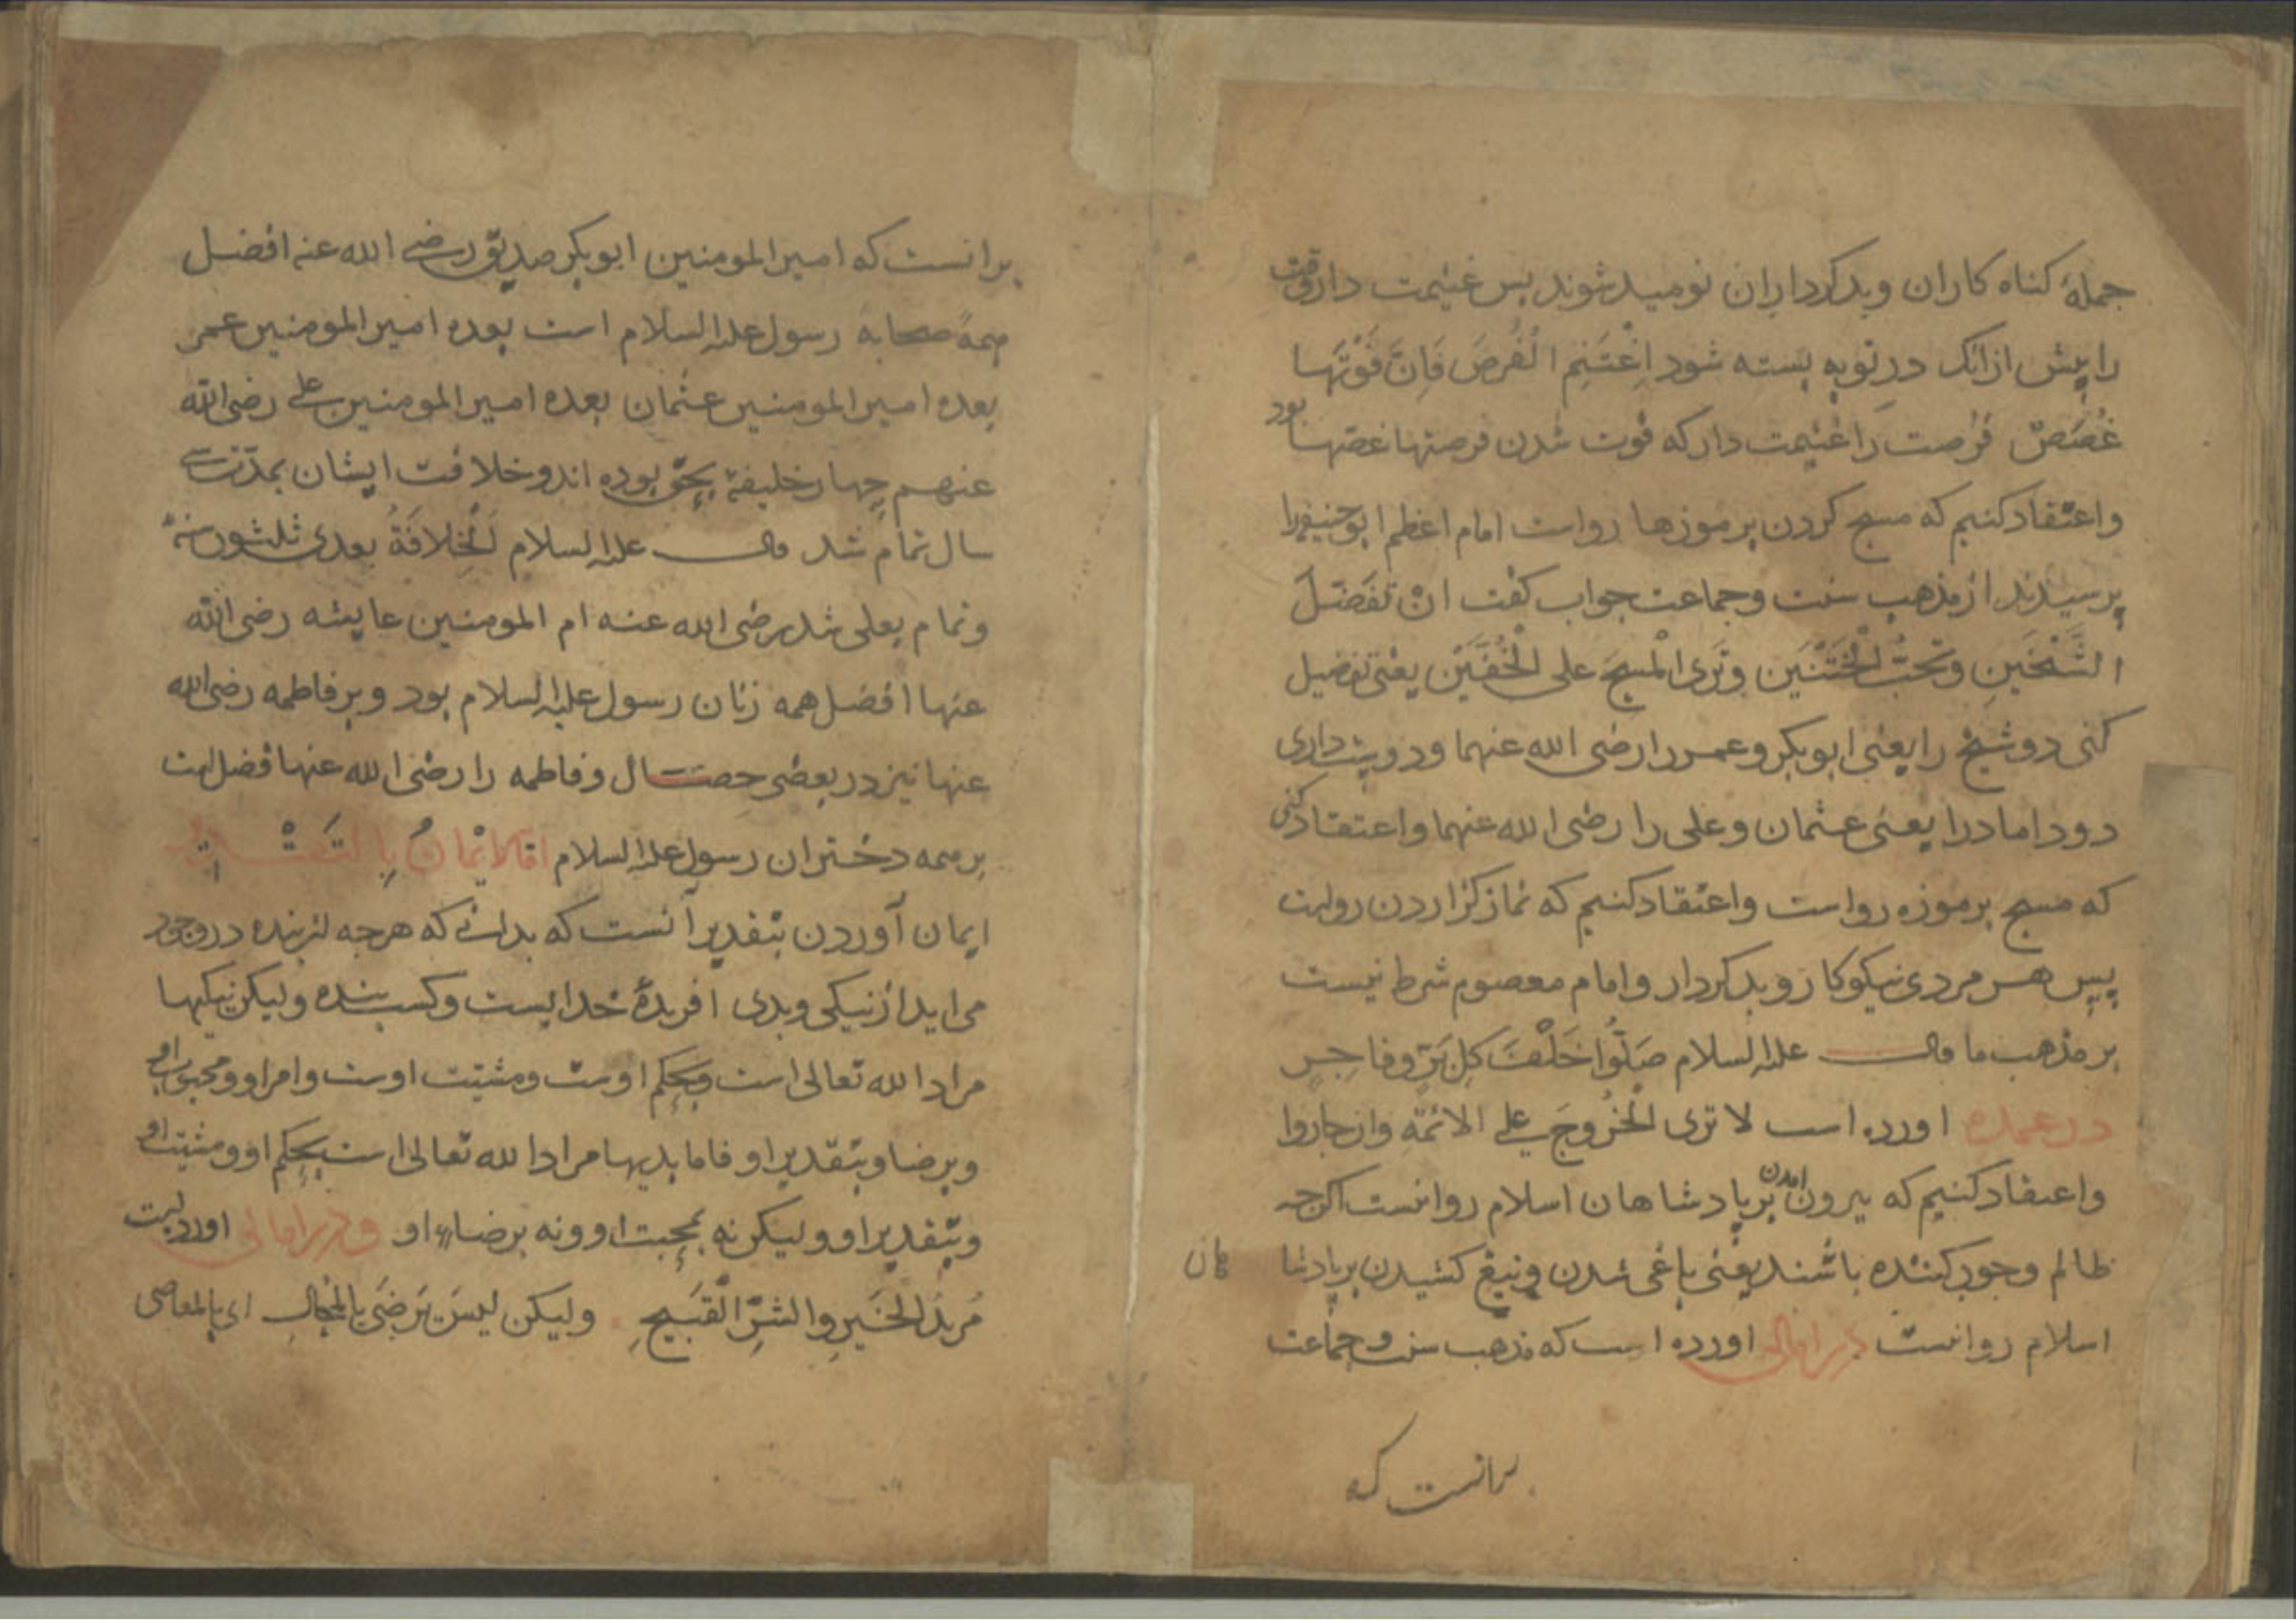 جملهٔ کناه کاران وبدکرداران نومید شوند پس غنیمت دار وقت
را پیش ازانک در توبه بسته شود اِغْتَنِم الْفُرصَ فَاِنَّ فَوْتَهَا
غُصَصٌ فرصت را غنیمت دار که فوت شدن فرصتها غصّها بود
واعتقاد کنیم که مسح کردن بر موزها رواست امام اعظم ابوحنیفه را
پرسیدند از مذهب سنت وجماعت جواب کفت انْ تفَضّلَ
الشَّیْخَینِ وتحُبَّ الْخَتَنَینِ وتَرَی الْمسحَ علی الْخُفَّیْنِ یعنی تفضیل
کنی دو شیخ را یعنی ابوبکر وعمر را رضی الله عنهما ودوست داری
دو داماد را یعنی عثمان وعلی را رضی الله عنهما واعتقاد کنی
که مسح بر موزه رواست واعتقاد کنیم که نماز کزاردن رواست
پسِ هر مردی نیکوکار وبدکردار وامام معصوم شرط نیست
بر مذهب ما قال علیه السلام صَلُّوا خَلْفَ کل بَرٍّ وفاجِرٍ
در عمده اورده است لا تری الْخُروجَ علی الائمّةِ وان جاروا
واعتقاد کنیم که بیرون امدن بر پادشاهان اسلام روانیست اکرچه
ظالم وجور کننده باشند یعنی باغی شدن وتیغ کشیدن بر پادشا
هان
اسلام روانیست در امالی اورده است که مذهب سنت وجماعت
برانست که
برانست که امیر المومنین ابوبکر صدیق رضی الله عنه افضل
همهٔ صحابه رسول علیه السلام است بعده امیر المومنین عمر
بعده امیر المومنین عثمان بعده امیر المومنین علی رضی الله
عنهم چهار خلیفهٔ بحقّ بوده اند وخلافت ایشان بمدّت سی
سال تمام شد قال علیه السلام اَلْخِلافَةُ بعدی ثلثون سنة
وتمام بعلی شد رضی الله عنه ام المومنین عایشه رضی الله
عنها افضل همه زنان رسول علیه السلام بود وبر فاطمه رضی الله
عنها نیز در بعضی خصال وفاطمه را رضی الله عنها فضل است
بر همه دختران رسول علیه السلام
ایمان آوردن بتقدیر آنست که بدانی که هرچه از بنده در وجود
می اید از نیکی وبدی افریدهٔ خدایست وکسب بنده ولیکن نیکیها
مراد الله تعالی است وبحکم اوست ومشیّت اوست وامر او ومحبوب او
وبرضا وبتقدیر او فاما بدیها مراد الله تعالی است بحکم او ومشیّت او
وبتقدیر او ولیکن نه بمحبت او ونه برضاء او ودر امالی اورده است
مُریدُ الخَیرِ والشرِّ الْقبَیحِ ولیکن لیسَ یَرضَی بالمُحالِ ای بالمعاصی